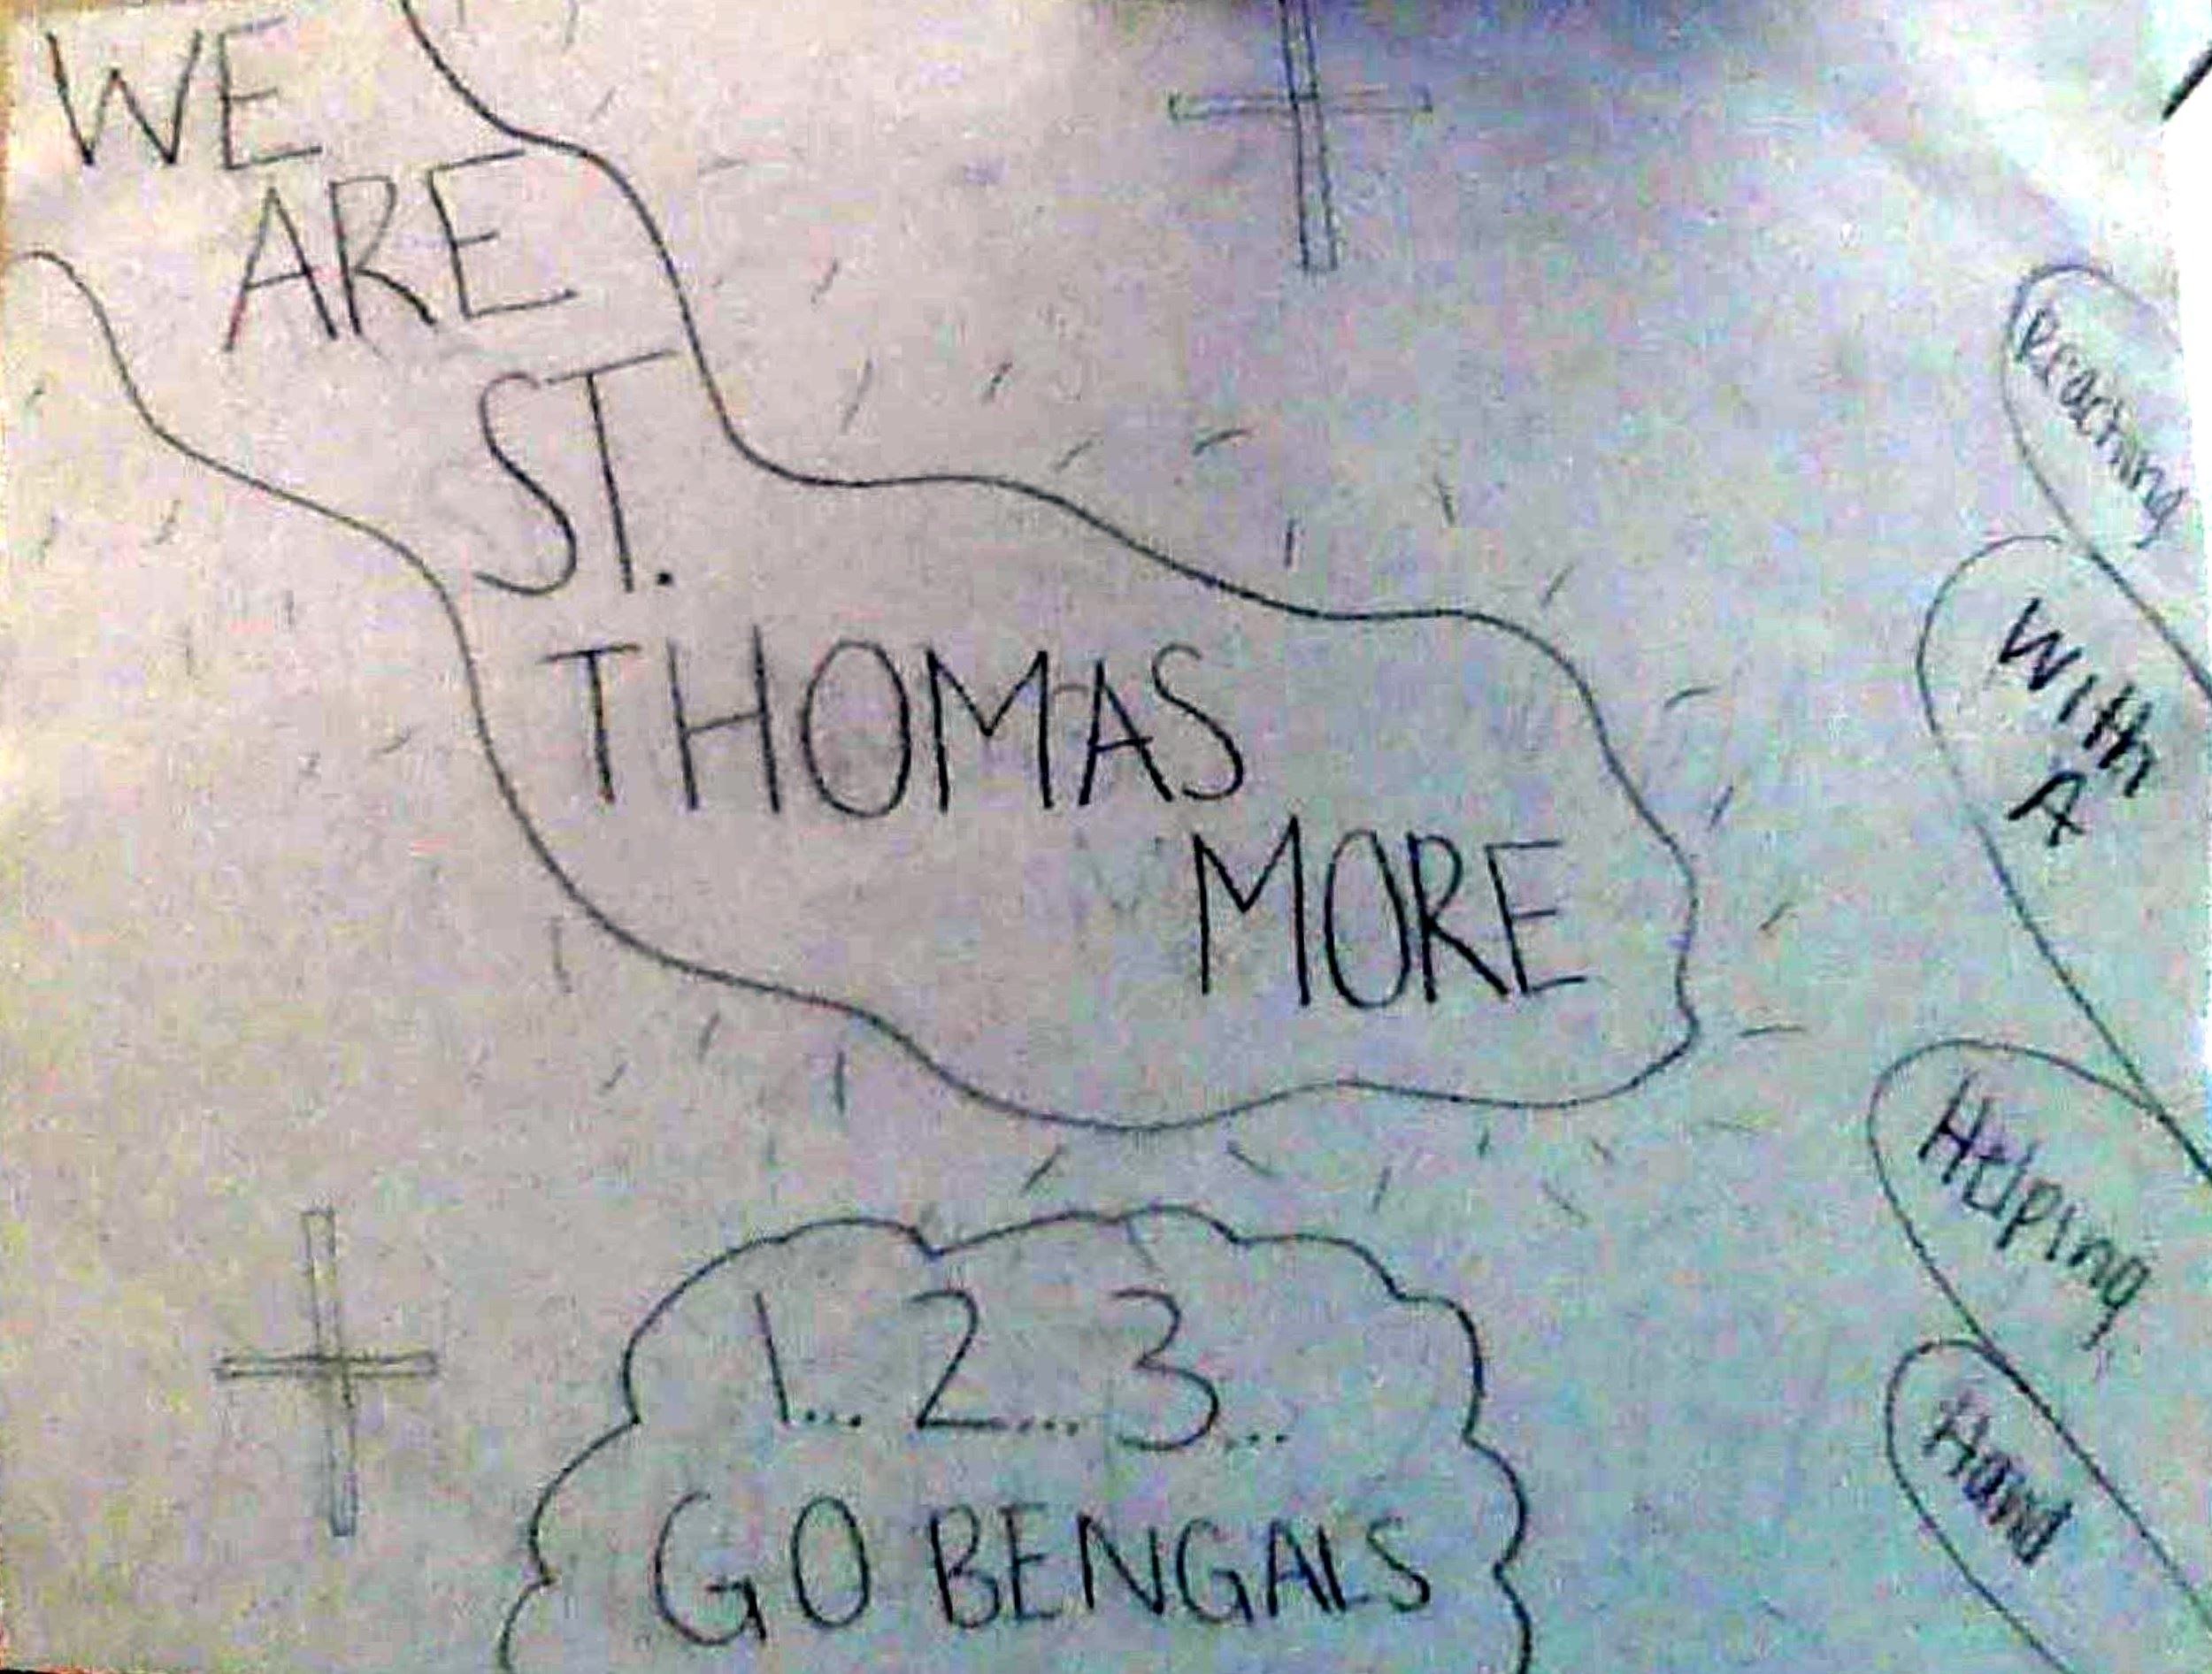 WE
ARE
ST.
THOMAS
MORE
1... 2... 3...
GO BENGALS
Reaching
With
A
Helping
Hand